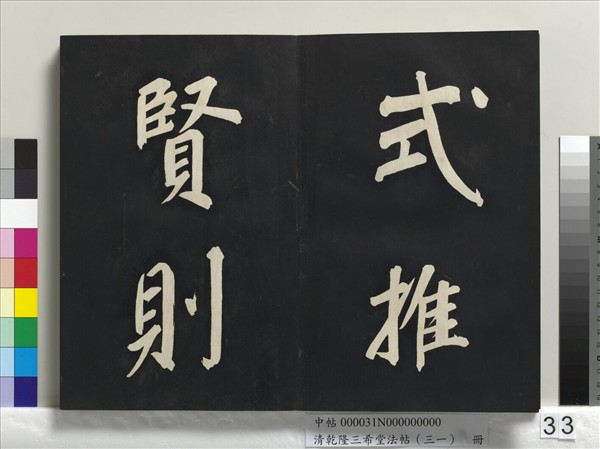 式推
賢則
中帖 000031N000000000
清乾隆三希堂法帖（三一） 冊
33